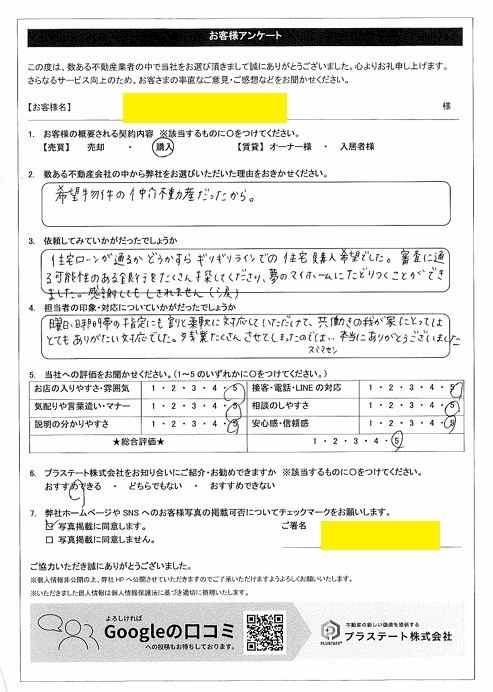 お客様アンケート
この度は、数ある不動産業者の中で当社をお選び頂きまして誠にありがとうございました。心よりお礼申し上げます。
さらなるサービス向上のため、お客さまの率直なご意見・ご感想などをお聞かせください。
【お客様名】 様
1. お客様の概要される契約内容 ※該当するものに○をつけてください。
【売買】 売却 ・ 購入 【賃貸】 オーナー様 ・ 入居者様
2. 数ある不動産会社の中から弊社をお選びいただいた理由をおきかせください。
希望物件の仲介不動産だったから。
3. 依頼してみていかがだったでしょうか
住宅ローンが通るかどうかすら ギリギリラインでの 住宅購入希望でした。 審査に通
る可能性のある銀行をたくさん探してくださり、夢のマイホームにたどりつくことができ
ました。感謝してもしきれません(涙)
4. 担当者の印象・対応についていかがでしょうか
曜日、時間帯の指定にも割と柔軟に対応していただけて、共働きの我が家にとっては
とてもありがたい対応でした。残業たくさんさせてしまったのでは… 本当にありがとうございました
スミマセン
5. 当社への評価をお聞かせください。（1～5のいずれかに○をつけてください。）
お店の入りやすさ・雰囲気 1・2・3・4・5 接客・電話・LINEの対応 1・2・3・4・5
気配りや言葉遣い・マナー 1・2・3・4・5 相談のしやすさ 1・2・3・4・5
説明の分かりやすさ 1・2・3・4・5 安心感・信頼感 1・2・3・4・5
★総合評価★ 1・2・3・4・5
6. プラステート株式会社をお知り合いにご紹介・お勧めできますか ※該当するものに○をつけてください。
おすすめできる ・ どちらでもない ・ おすすめできない
7. 弊社ホームページや SNS へのお客様写真の掲載可否についてチェックマークをお願いします。
☑ 写真掲載に同意します。 ご署名
□ 写真掲載に同意しません。
ご協力いただき誠にありがとうございました。
※個人情報非公開の上、弊社 HP へ公開させていただきますのでご了承いただけますようよろしくお願いいたします。
※いただきました個人情報は個人情報保護法に基づき適切に処理いたします。
よろしければ
Googleの口コミ
への投稿もお待ちしております。
不動産の新しい価値を提供する
プラステート株式会社
PLUSTATE